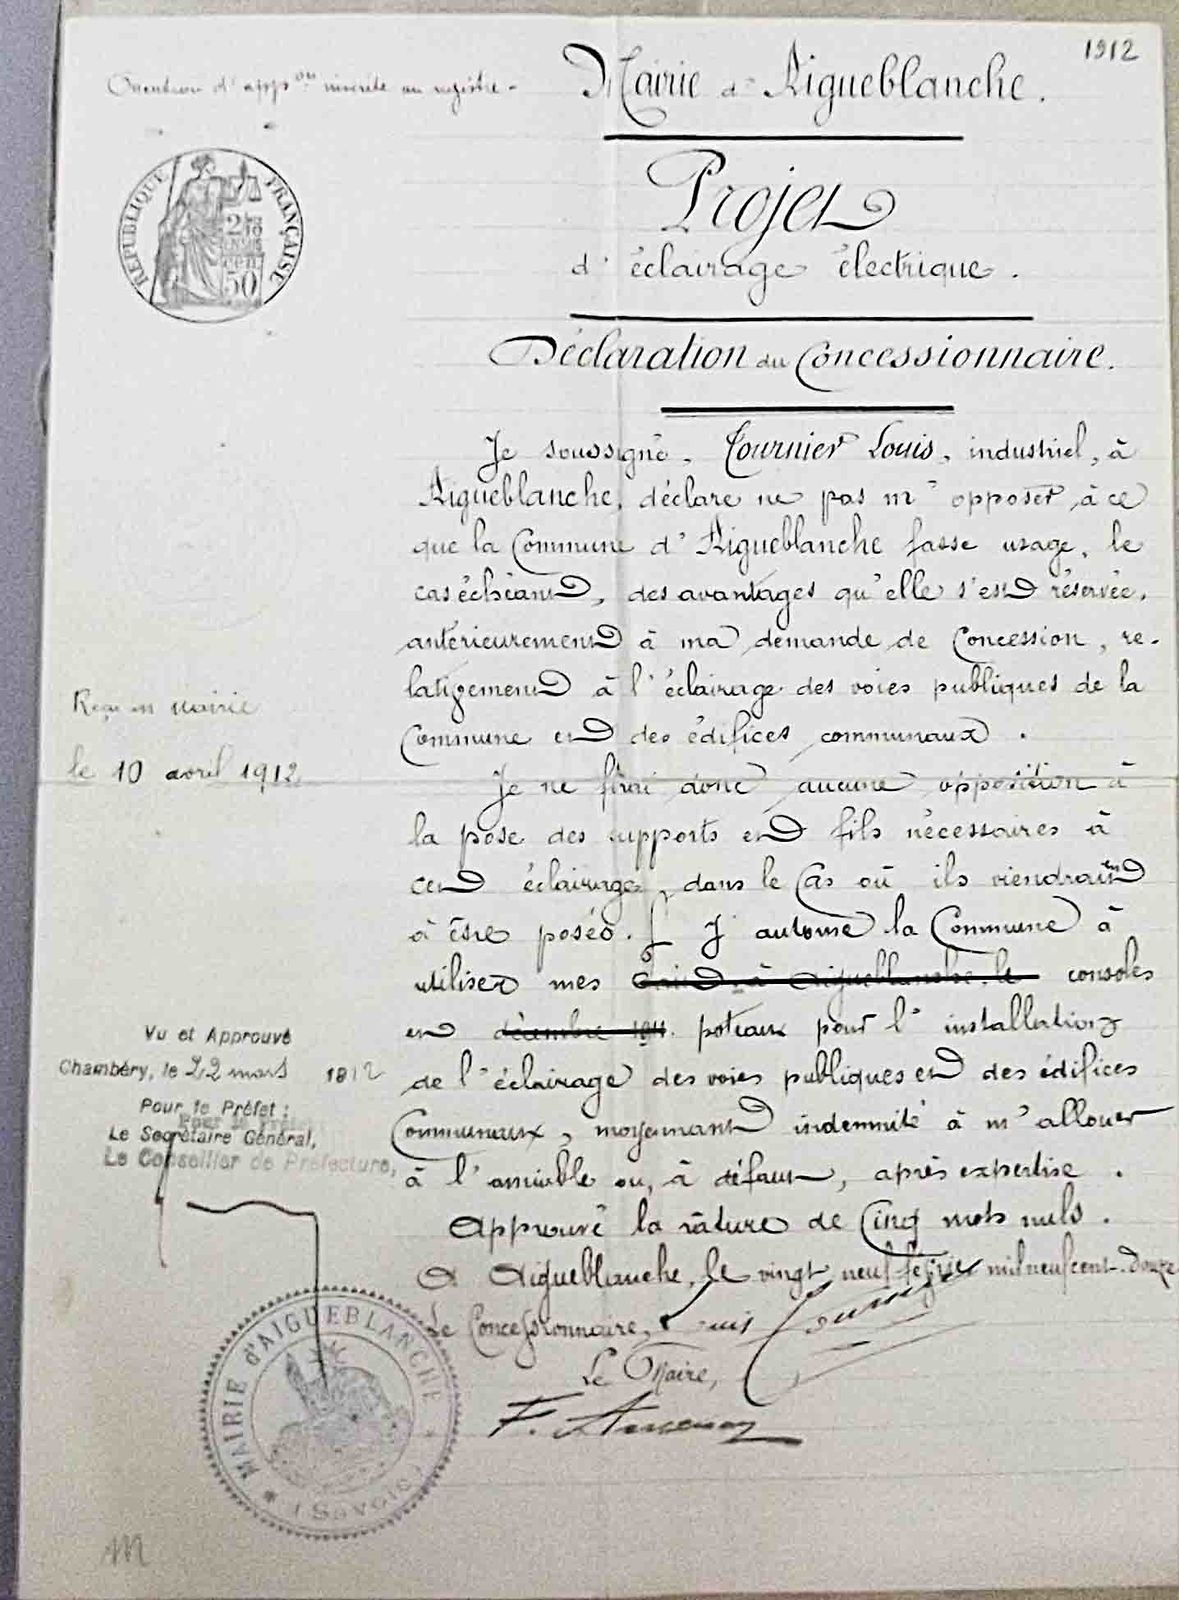 1912
Mairie d'Aigueblanche.
Mention d'app.on inscrite au registre.
RÉPUBLIQUE FRANÇAISE
50
Projet
d'éclairage électrique.
Déclaration du Concessionnaire.
Je soussigné, Cournier Louis, industriel, à
Aigueblanche, déclare ne pas m'opposer à ce
que la Commune d'Aigueblanche fasse usage, le
cas échéant, des avantages qu'elle s'est réservée,
antérieurement à ma demande de Concession, re-
lativement à l'éclairage des voies publiques de la
Commune et des édifices communaux.
Reçu en mairie
le 10 avril 1912
Je ne ferai donc aucune opposition à
la pose des supports et fils nécessaires à
cet éclairage, dans le cas où ils viendraient
à être posés. J'autorise la Commune à
utiliser mes Fait à Aigueblanche, le consoles
et décembre 1911. poteaux pour l'installation
de l'éclairage des voies publiques et des édifices
Communaux, moyennant indemnité à m'allouer
à l'amiable ou, à défaut, après expertise.
Vu et Approuvé
Chambéry, le 22 mars 1912
Pour le Préfet :
Le Secrétaire Général,
Le Conseiller de Préfecture,
Approuvé la rature de Cinq mots nuls.
A Aigueblanche, le vingt neuf février mil neuf cent-douze
Le Concessionnaire, Louis Cournier
Le Maire,
F.
MAIRIE D'AIGUEBLANCHE
(SAVOIE)
M